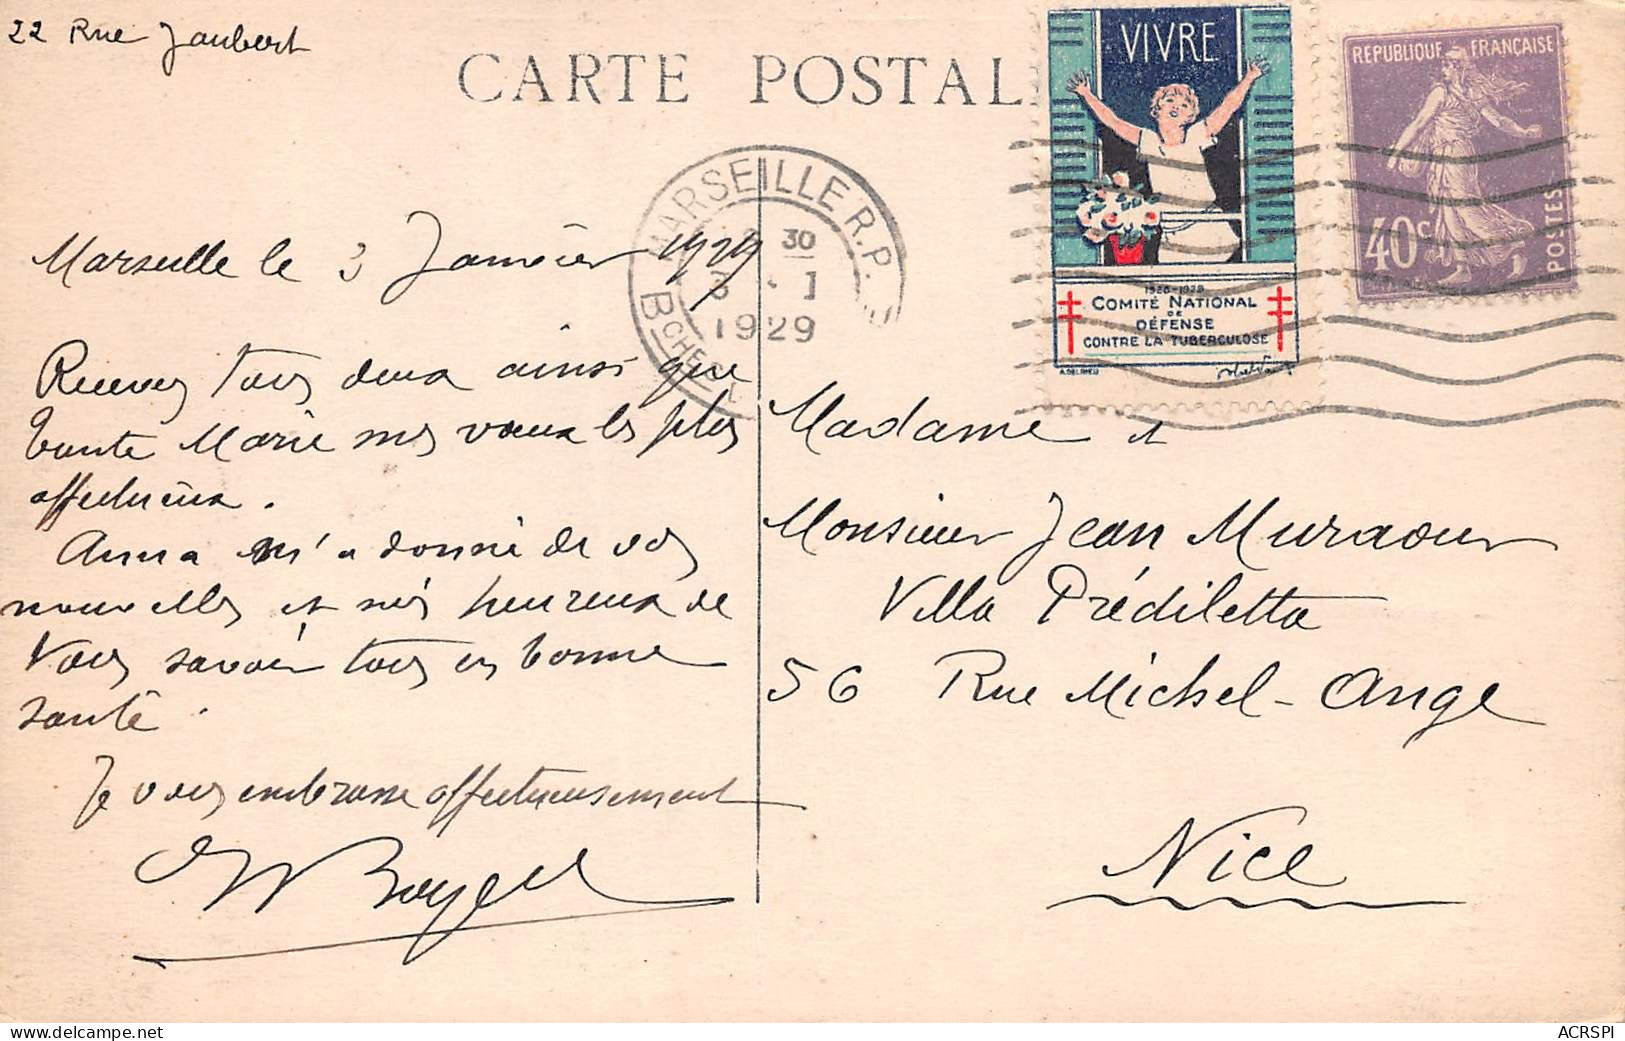 22 Rue Jaubert
CARTE POSTAL
VIVRE
REPUBLIQUE FRANÇAISE
40c
POSTES
MARSEILLE R.P.
30
3 - 1
1929
BCHES
1928-1929
COMITÉ NATIONAL
DE
DÉFENSE
CONTRE LA TUBERCULOSE
Marseille le 3 Janvier 1929
Recevez tous deux ainsi que
tante Marie mes vœux les plus
affectueux.
Anna m'a donné de vos
nouvelles et suis heureux de
vous savoir tous en bonne
santé.
Je vous embrasse affectueusement
Madame et
Monsieur Jean Muraour
Villa Prédiletta
56 Rue Michel-Ange
Nice
delcampe.net
ACRSPI